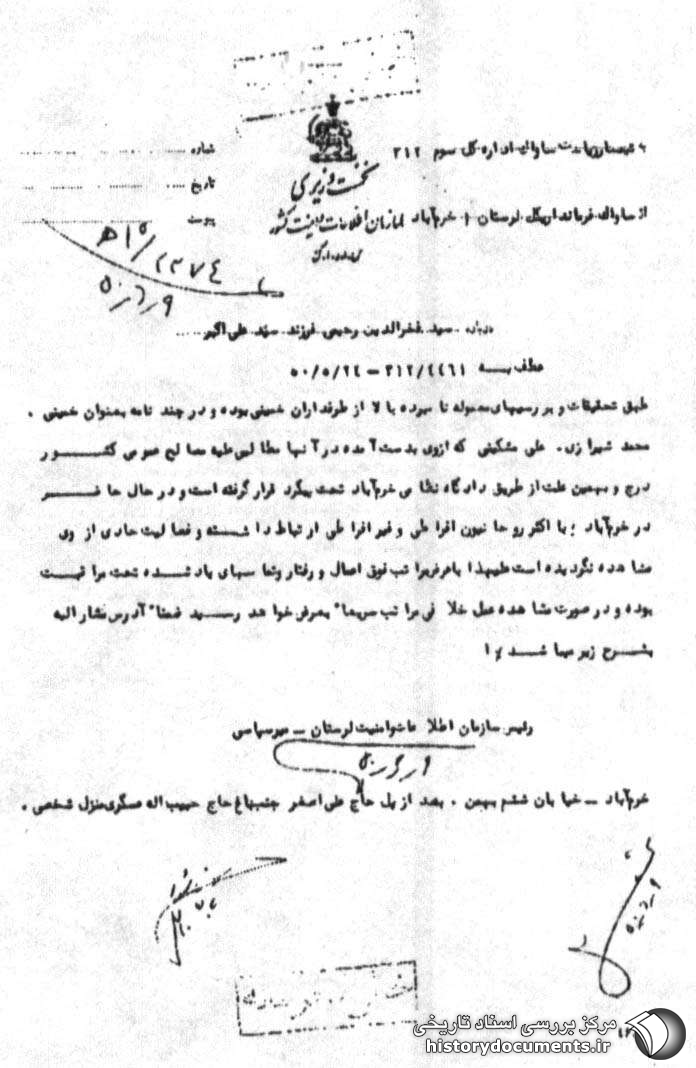 به تیمسار ریاست ساواک اداره کل سوم ۳۱۲
شماره
نخست وزیری
تاریخ
از ساواک فرمانداریکل لرستان / خرم‌آباد
سازمان اطلاعات و امنیت کشور
پیوست
س.ا.و.ا.ک
۱۰/۲۳۷٤ ه‍
۵۰٫۶٫۹
درباره سید فخرالدین رحیمی فرزند سید علی اکبر
عطف به ۳۱۲/۴۴۶۱ – ۵۰/۵/۲۴
طبق تحقیقات و بررسیهای معموله نامبرده بالا از طرفداران خمینی بوده و در چند نامه بعنوان خمینی .
محمد شیرازی . علی مشکینی که ازوی بدست آمده در آنها مطالبی علیه مصالح عمومی کشور
درج و بهمین علت از طریق دادگاه نظامی خرم‌آباد تحت پیگرد قرار گرفته است و در حال حاضر
در خرم‌آباد با اکثر روحانیون افراطی و غیر افراطی ارتباط داشته و فعالیت حادی از وی
مشاهده نگردیده است علیهذا بامرفی مراتب فوق اعمال و رفتار و تماسهای یاد شده تحت مراقبت
بوده و در صورت مشاهده عمل خلافی مراتب سریعا" بعرض خواهد رسید ضمنا" آدرس مشارالیه
بشرح زیر میباشد /
رئیس سازمان اطلاعات و امنیت لرستان – میرسپاسی
۵۰٫۶٫۹
خرم‌آباد – خیابان ششم بهمن . بعد از پل حاج علی اصغر جنب باغ حاج حبیب اله عسگری منزل شخصی .
۵۰٫۶٫۹
مرکز بررسی اسناد تاریخی
historydocuments.ir